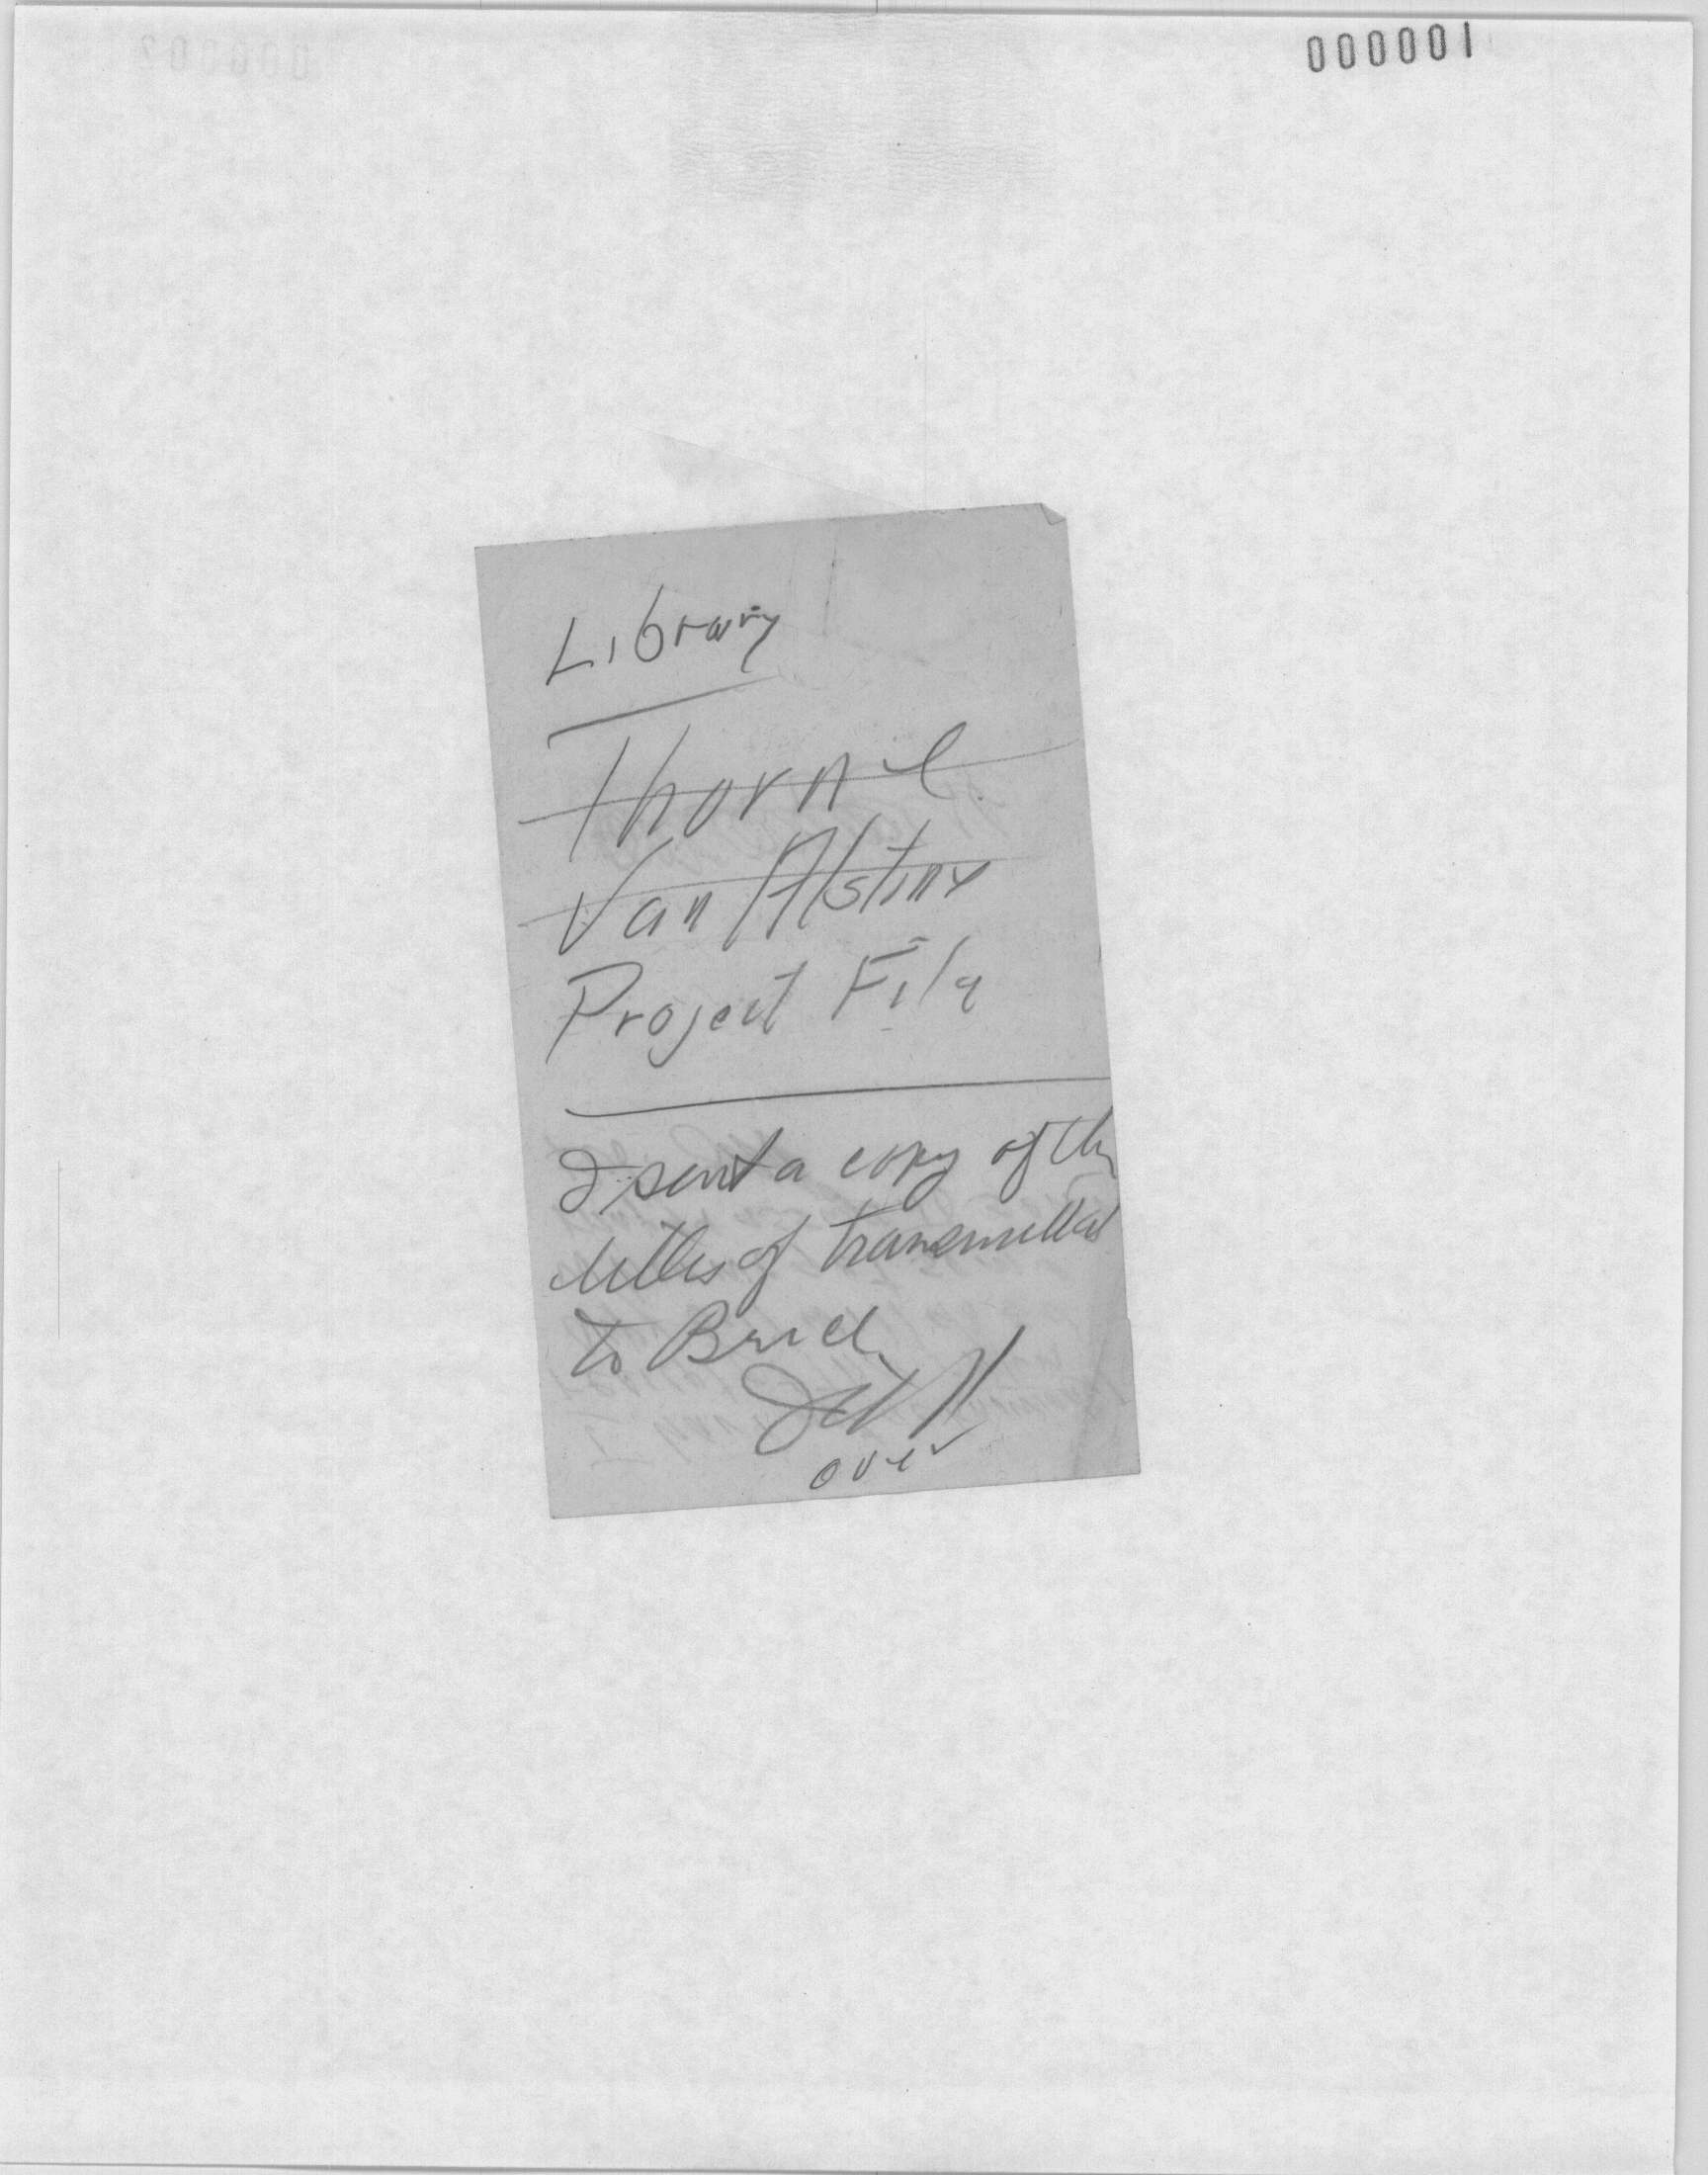 000001
Library
Thorne
Van Alstine
Project File
I sent a copy of the
letter of transmittal
to
over